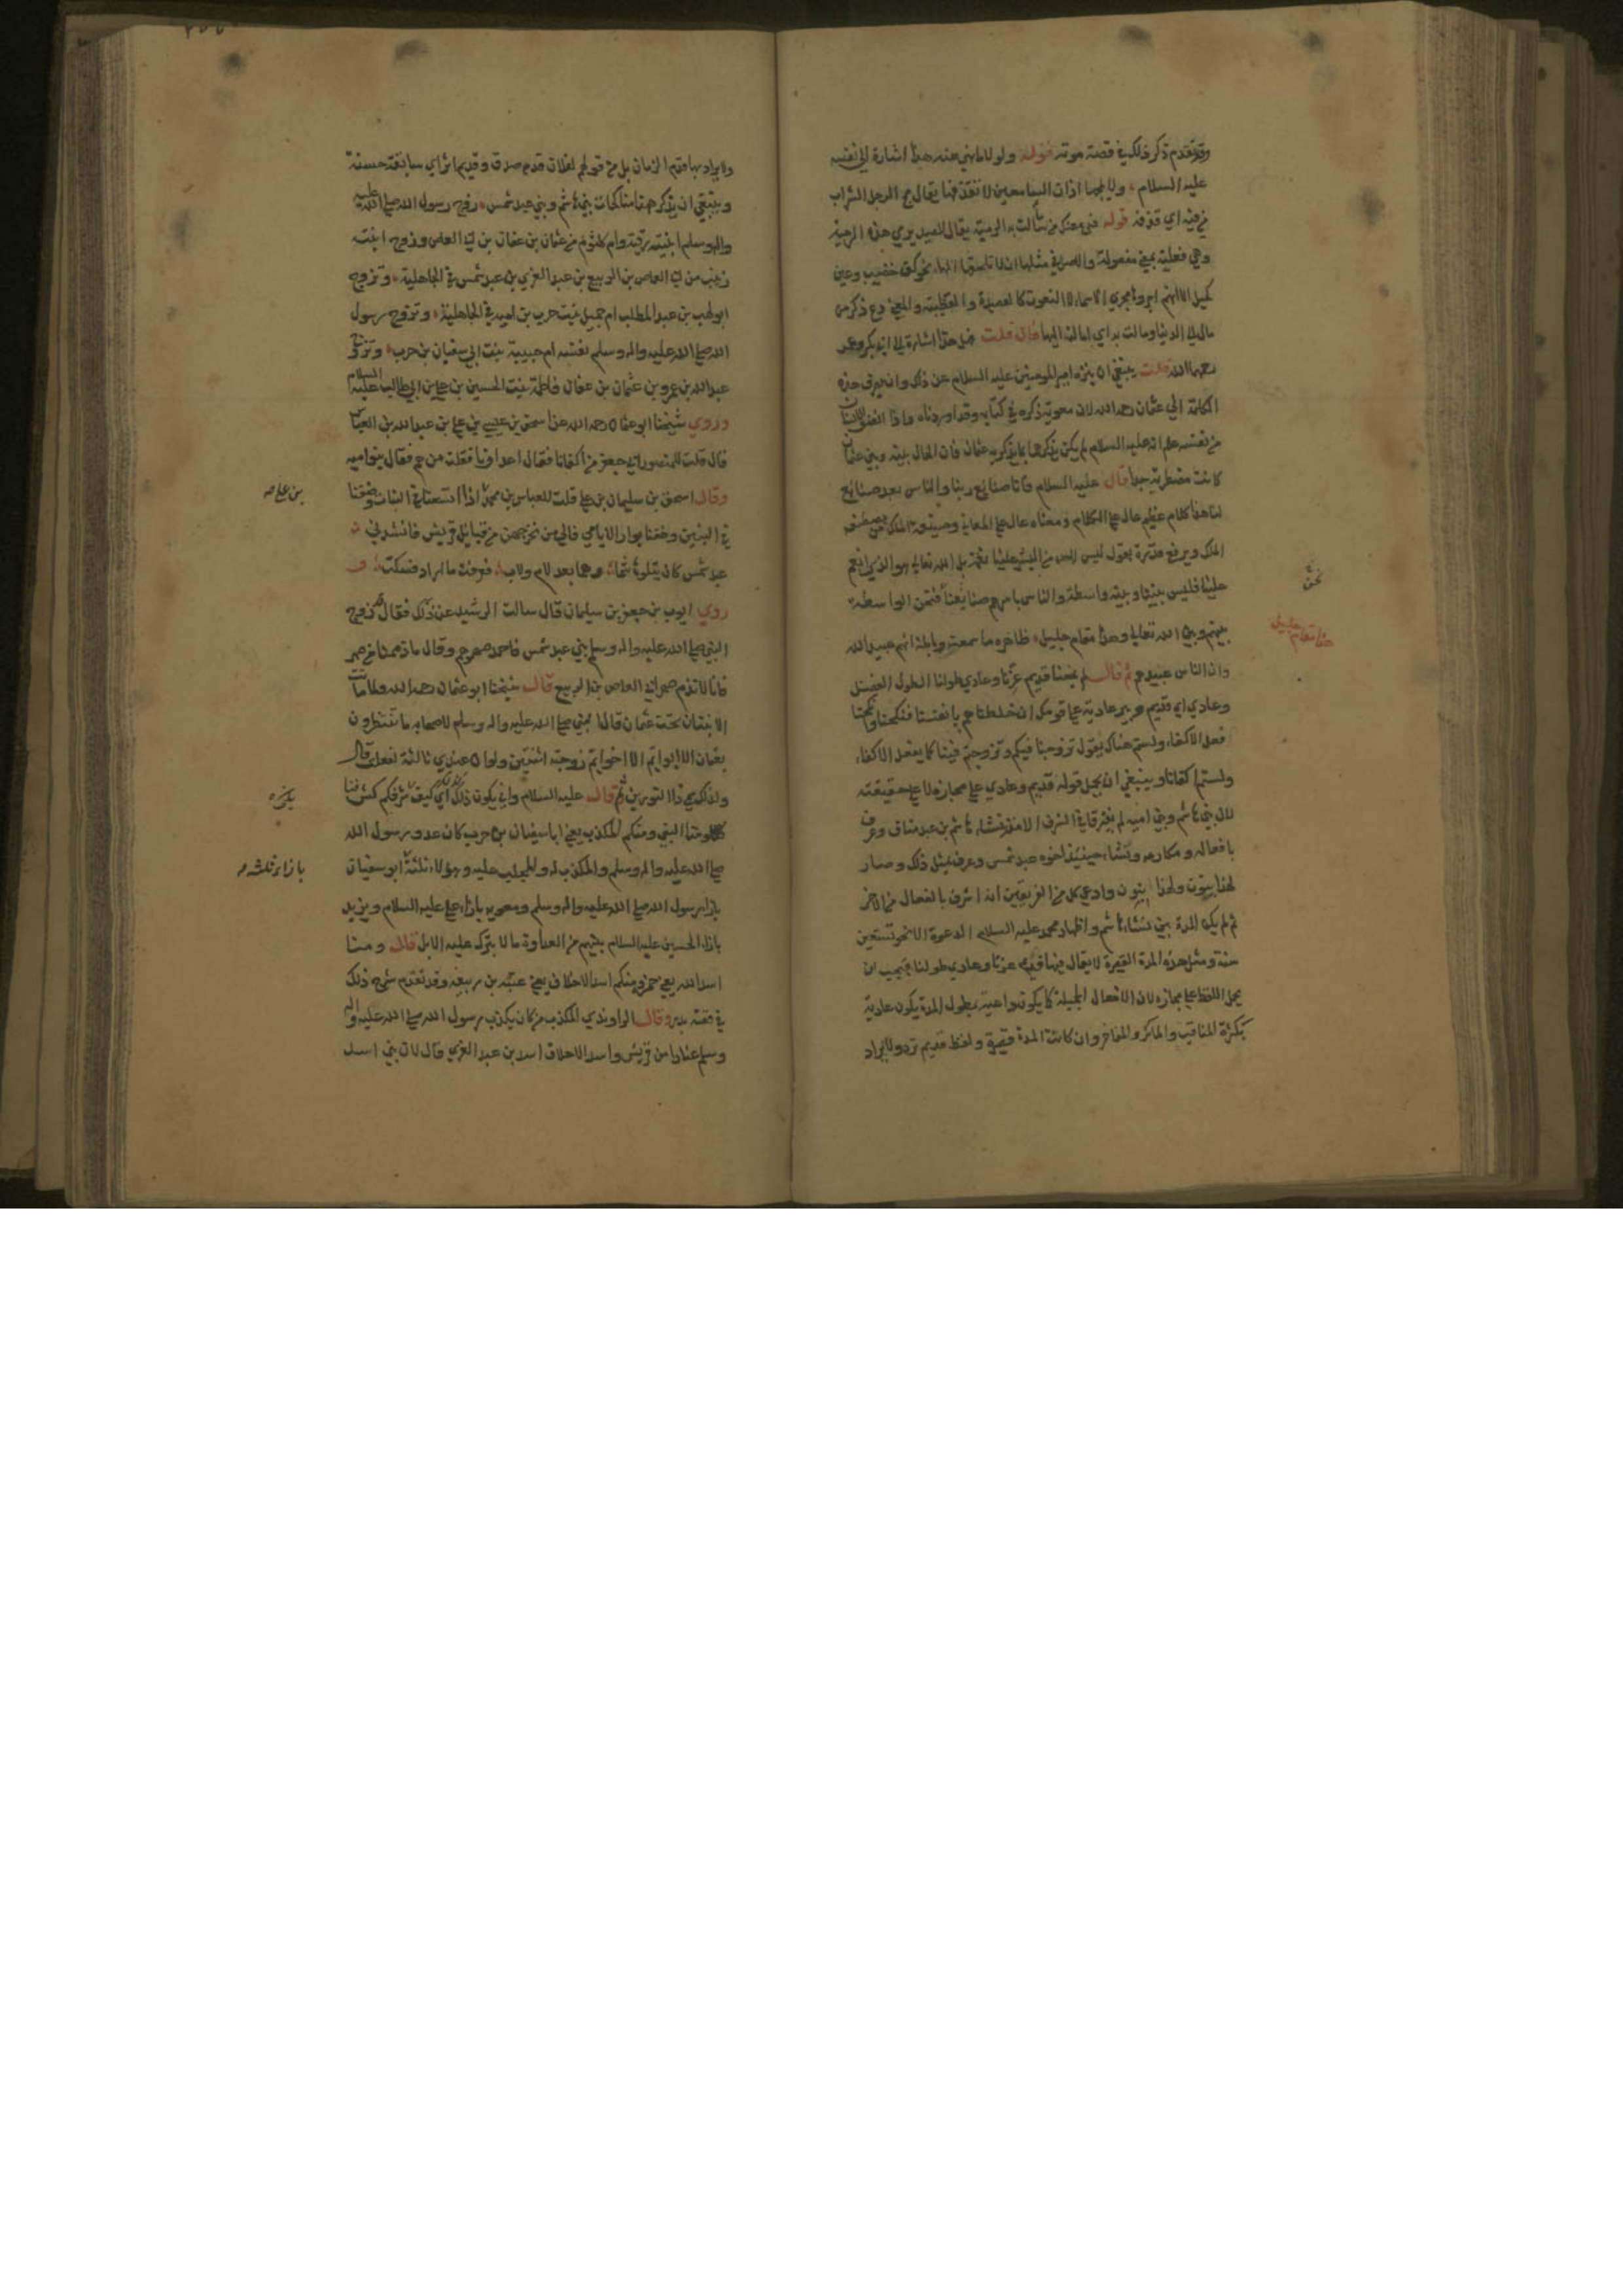 وقد تقدم ذكر ذلك في قصة موته قوله ولولا ما نهى عنه هذا اشارة الى نفسه
عليه السلام ولا تمجها اذان السامعين لا تقذفها يقال مج الرجل الشراب
من فيه اي قذفه قوله فدع عنك من مالت به الرمية يقال للصيد يرمى هذه الرمية
وهي فعيلة بمعنى مفعولة والاصل في مثلها ان لا تلحقها الهاء نحو كف خضيب وعين
كحيل الا انهم اجروها مجرى الاسماء لا النعوت كالقصيدة والقطيعة والمعنى دع ذكر من
مال الى الدنيا ومالت به اي امالته اليها فان قلت فهل هذا اشارة الى ابي بكر وعمر
رحمهما الله قلت ينبغي ان ينزه امير المومنين عليه السلام عن ذلك وان تصرف هذه
الكلمة الى عثمان رحمه الله لان معوية ذكره في كتابه وقد اوردناه واذا انصف الانسان
من نفسه علم انه عليه السلام لم يكن يذكرهما بما يذكر به عثمان فان الحال بينه وبين عثمان
كانت مضطربة جدا قال عليه السلام فانا صنائع ربنا والناس بعد صنائع
لنا هذا كلام عظيم عال على الكلام ومعناه عال على المعاني وصنيعة الملك من يصطنعه
الملك ويرفع قدره يقول ليس لاحد من البشر علينا نعمة بل الله تعالى هو الذي انعم
علينا فليس بيننا وبينه واسطة والناس باسرهم صنايعنا فنحن الواسطة
بينهم وبين الله تعالى وهذا مقام جليل ظاهره ما سمعت وباطنه انهم عبيد الله
وان الناس عبيدهم ثم قال لم يمنعنا قديم عزنا وعادي طولنا الطول الفضل
وعادي اي قديم بئر عادية على قومك ان خلطناهم بانفسنا فنكحنا وانكحنا
فعل الاكفاء ولستم هناك يقول تزوجنا فيكم وتزوجتم فينا كما يفعل الاكفاء
ولستم اكفانا وينبغي ان يحمل قوله قديم وعادي على مجازه لا على حقيقته
لان بني هاشم وبني امية لم يفترقا في الشرف الا منذ نشاء هاشم بن عبد مناف وعرف
بافعاله ومكارمه ونشاء حينئذ اخوه عبد شمس وعرف بمثل ذلك وصار
لهذا بنون ولهذا بنون وادعى كل من الفريقين انه اشرف بالفعال من الاخر
ثم لم يكن المدة بين نشاء هاشم واظهار محمد عليه السلام الدعوة الا نحو تسعين
سنة ومثل هذه المدة القصيرة لا يقال فيها قديم عزنا وعادي طولنا فيجب ان
يحمل اللفظ على مجازه لان الافعال الجميلة كما يكون عادية بطول المدة يكون عادية
بكثرة المناقب والماثر والمفاخر وان كانت المدة قصيرة ولفظ قديم ترد ولا يراد
نحن
هذا مقام جليل
ولا يراد بها قدم الزمان بل من قولهم لفلان قدم صدق وقديم اثر اي سابقة حسنة
وينبغي ان يذكر ههنا مناكحات بني هاشم وبني عبد شمس زوج رسول الله صلى الله عليه
واله وسلم ابنتيه رقية وام كلثوم من عثمان بن عفان بن ابي العاص وزوج ابنته
زينب من ابي العاص بن الربيع بن عبد العزى بن عبد شمس في الجاهلية وتزوج
ابو لهب بن عبد المطلب ام جميل بنت حرب بن امية في الجاهلية وتزوج رسول
الله صلى الله عليه واله وسلم نفسه ام حبيبة بنت ابي سفيان بن حرب وتزوج
عبد الله بن عمرو بن عثمان بن عفان فاطمة بنت الحسين بن علي بن ابي طالب عليه السلام
وروى شيخنا ابو عثمان رحمه الله عن اسحق بن عيسى بن علي بن عبد الله بن العباس
قال قلت للمنصور ابي جعفر من اكفانا فقال اعداونا فقلت من هم فقال بنو اميه
وقال اسحق بن سليمان بن علي قلت للعباس بن محمد اذا اتسعنا في البنات وضقنا
في البنين وخفنا بوار الايامى فالى من نخرجهن من قبائل قريش فانشدني
عبد شمس كان يتلو هاشما وهما بعد لام ولاب فعرفت ما اراد فسكت و
روى ايوب بن جعفر بن سليمان قال سالت الرشيد عن ذلك فقال زوج
النبي صلى الله عليه واله وسلم بني عبد شمس فاحمد صهرهم وقال ما ذممنا من صهر
فانا لا نذم صهر ابي العاص بن الربيع قال شيخنا ابو عثمان رحمه الله ولما ماتت
الابنتان تحت عثمان قال النبي صلى الله عليه واله وسلم لاصحابه ما تنتظرون
بعثمان الا ابو ايم الا اخو ايم زوجته اثنتين ولو ان عندي ثالثة لفعلت قال
ولذلك سمي ذا النورين ثم قال عليه السلام وانى يكون ذلك اي كيف شرفكم كشرفنا
ومنا النبي ومنكم المكذب يعني ابا سفيان بن حرب كان عدو رسول الله
صلى الله عليه واله وسلم والمكذب له والمجلب عليه وهولاء ثلثة ابو سفيان
بازاء رسول الله صلى الله عليه واله وسلم ومعوية بازاء علي عليه السلام ويزيد
بازاء الحسين عليه السلام بينهم من العداوة ما لا يترك عليه الابل قال ومنا
اسد الله يعني حمزة ومنكم اسد الاحلاف يعني عتبة بن ربيعة وقد تقدم شرح ذلك
في قصة بدر وقال الراوندي المكذب من كان يكذب رسول الله صلى الله عليه واله
وسلم عنادا من قريش واسد الاحلاف اسد بن عبد العزى قال لان بني اسد
بن علي
بازاء ثلثة